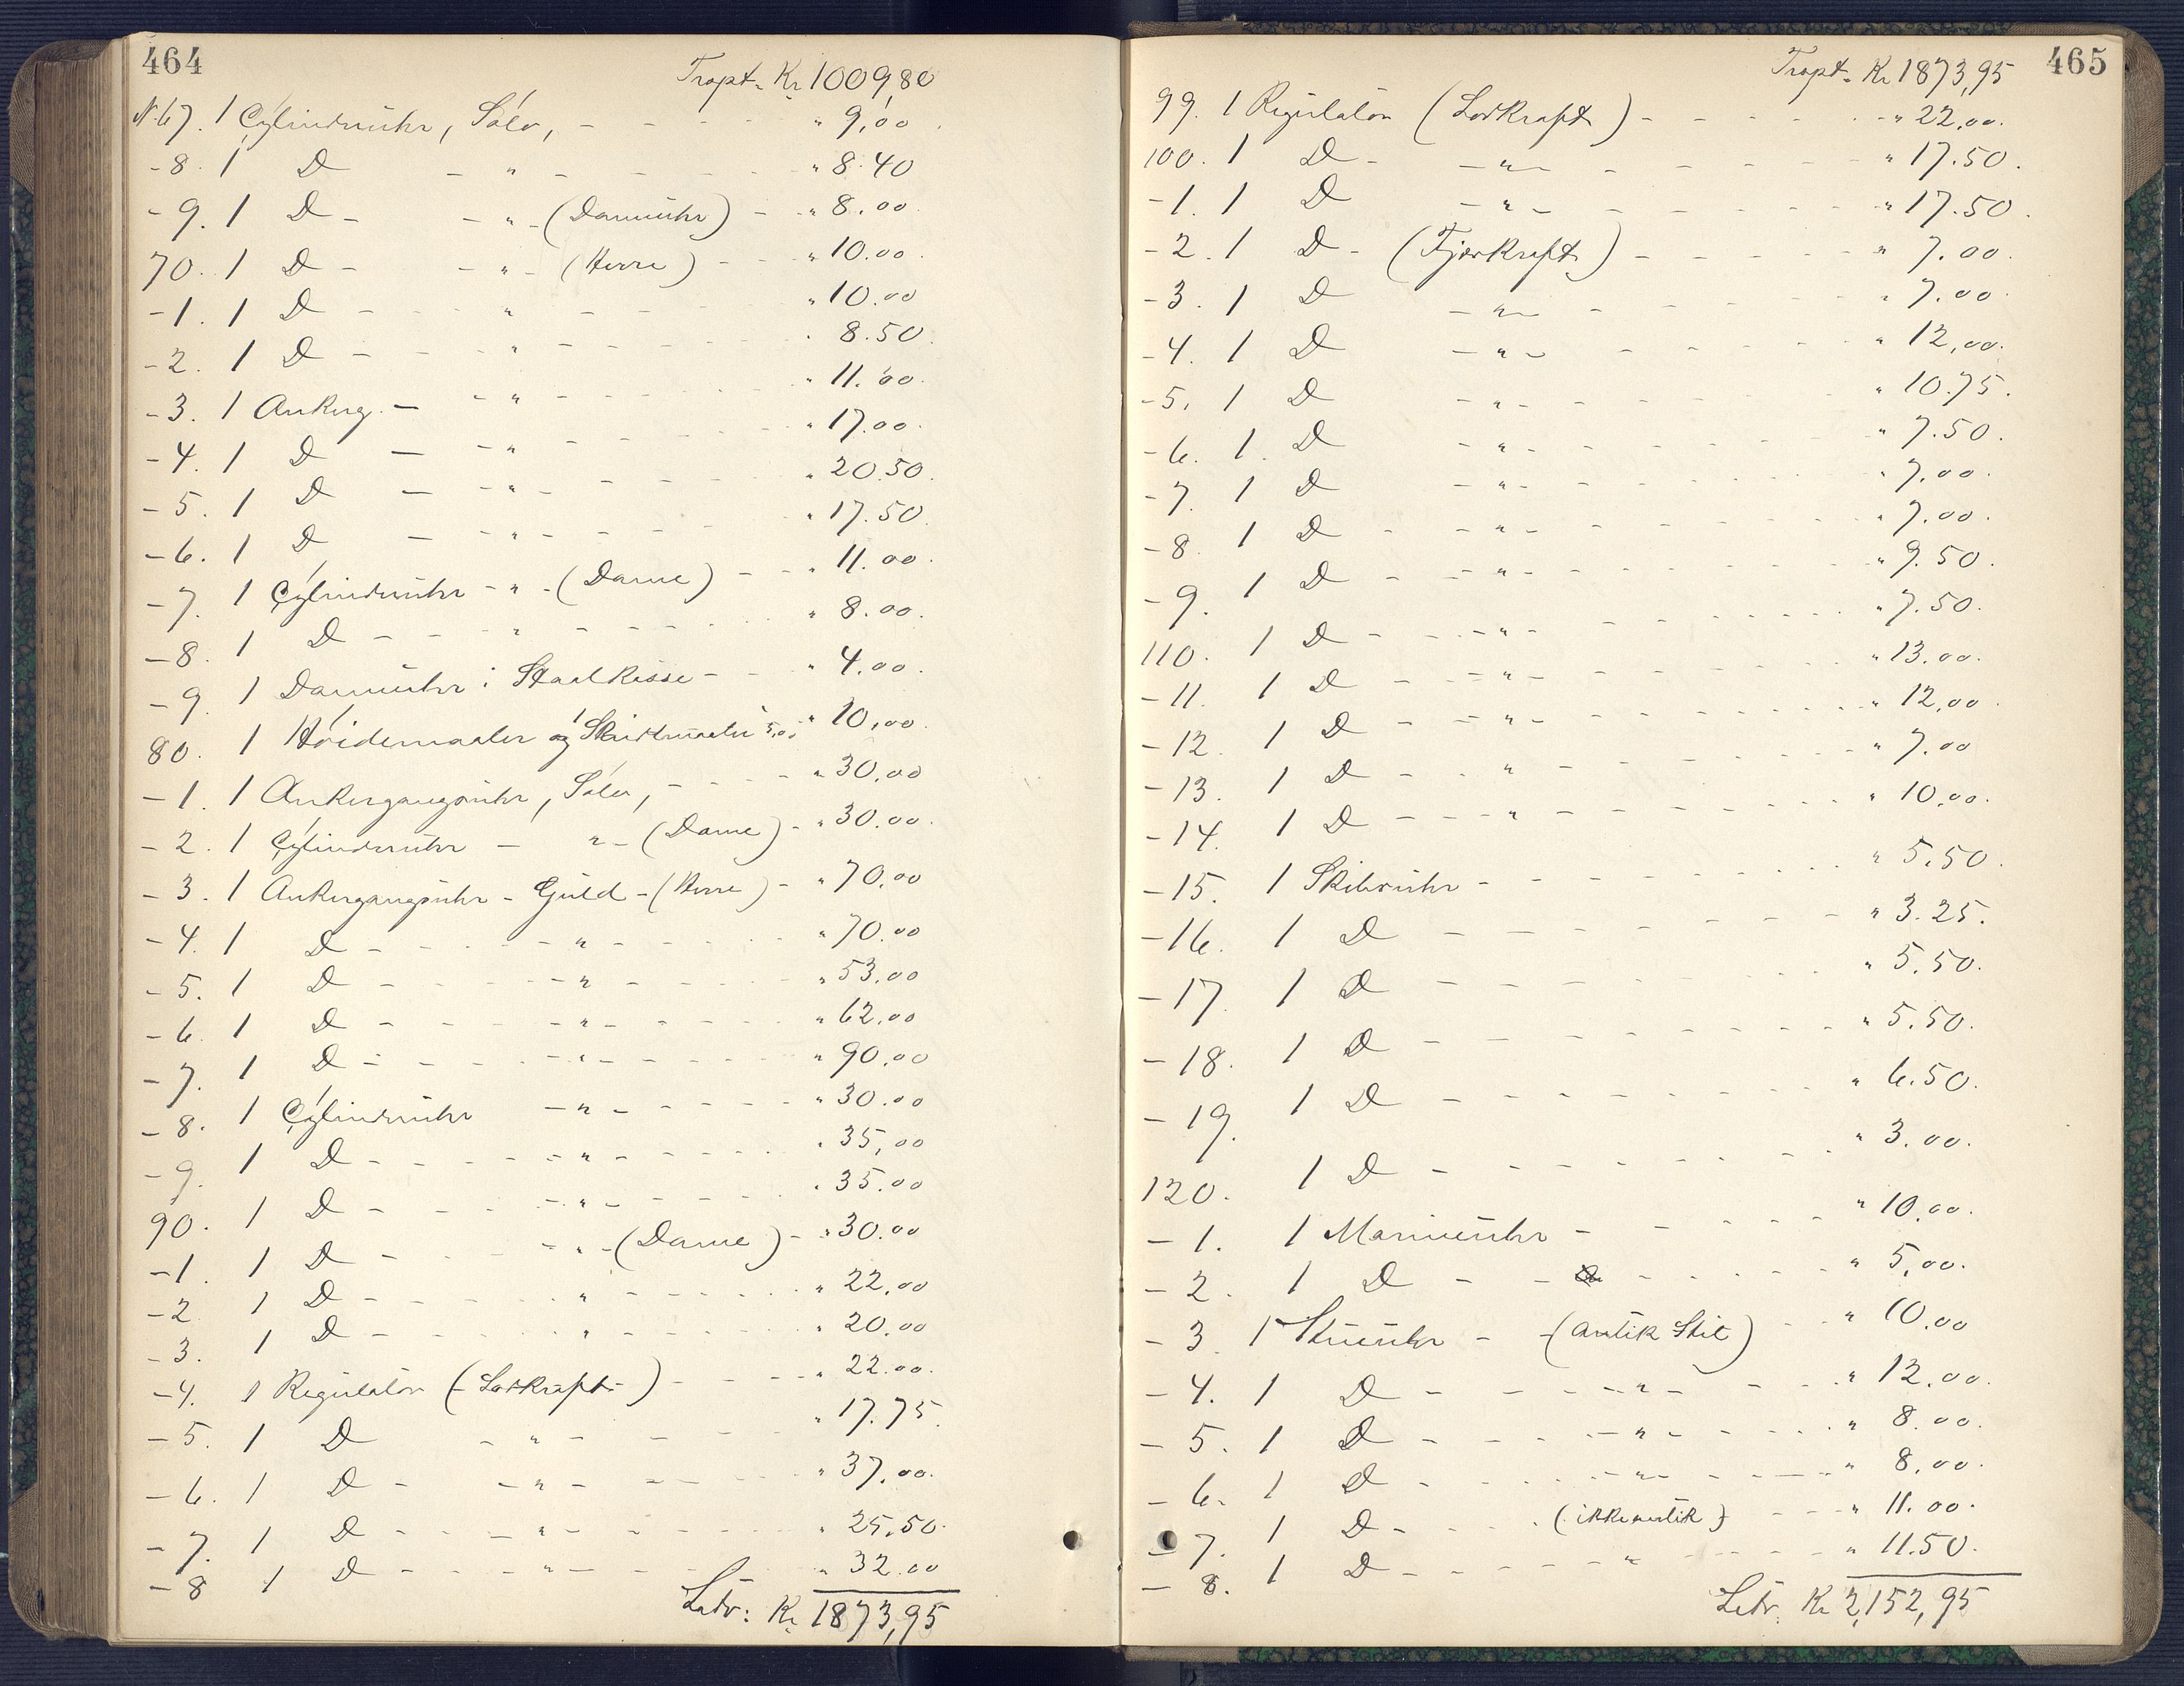 464
Trspt. Kr 1009,80
N. 67. 1 Cylinderuhr, Sølv, - - - " 9,00
- 8. 1 D - " - - - - " 8.40
- 9. 1 D - - " - (Dameuhr) - " 8.00
70. 1 D - - " - (Herre) - - " 10.00
- 1. 1 D - - - " - - - " 10.00
- 2. 1 D - - - " - - - " 8.50
- 3. 1 Ankerg. - - " - - - " 11.00
- 4. 1 D - - " - - - " 17.00
- 5. 1 D - - " - - - " 20.50
- 6. 1 D - - " - - - " 17.50
- 7. 1 Cylinderuhr - " - (Dame) - - " 11.00
- 8. 1 D - - " - - - " 8.00
- 9. 1 Dameuhr i Staalkasse - - " 4.00
80. 1 Høidemaaler og 1 Skridtmaaler 5,00 " 10,00
- 1. 1 Ankergangsuhr, Sølv, - - - " 30,00
- 2. 1 Cylinderuhr - " - (Dame) - " 30.00
- 3. 1 Ankergangsuhr - Guld - (Herre) - " 70,00
- 4. 1 D - - - " - - - " 70.00
- 5. 1 D - - - " - - - " 53,00
- 6. 1 D - - - " - - - " 62,00
- 7. 1 D - - - " - - - " 90,00
- 8. 1 Cylinderuhr - " - - - - " 30.00
- 9. 1 D - - - " - - - " 35,00
90. 1 D - - - " - - - " 35.00
- 1. 1 D - - - " - (Dame) - " 30.00
- 2 1 D - - - " - - - " 22,00
- 3. 1 D - - - " - - - " 20.00
- 4. 1 Regulator (- Lodkraft -) - - - " 22.00.
- 5. 1 D - " - - - " 17.75.
- 6. 1 D - - " - - - " 37,00.
- 7. 1 D - - - " - - - " 25,50.
- 8 1 D - - - " - - - " 32.00
Latr: Kr. 1873,95
465
Trspt. Kr 1873,95
99. 1 Regulator (Lodkraft) - - - - " 22,00.
100. 1 D - - " - - - - " 17.50.
- 1. 1 D - " - - - - " 17.50.
- 2. 1 D - (Fjærkraft) - - - - " 7.00.
- 3. 1 D - " - - - - " 7.00.
- 4. 1 D - " - - - - " 12,00.
- 5. 1 D - " - - - - " 10.75.
- 6. 1. D - " - - - - " 7.50.
- 7. 1 D - " - - - - " 7,00.
- 8. 1 D - - " - - - - " 7.00.
- 9. 1 D - - " - - - - " 9.50.
110. 1 D - - " - - - - " 7.50.
- 11. 1 D - - " - - - - " 13.00.
- 12. 1 D - - " - - - - " 12,00.
- 13. 1 D - - " - - - - " 7.00
- 14. 1 D - - " - - - - " 10,00.
- 15. 1 Skibsuhr - - - - " 5.50.
- 16. 1 D - - - - " 3.25.
- 17. 1 D - - - - " 5.50.
- 18. 1 D - - - - " 5.50.
- 19. 1 D - - - - " 6.50.
120. 1 D - - - - " 3.00.
- 1. 1 Marineuhr - - - - " 10.00.
- 2. 1 D - - - - - " 5,00.
- 3. 1 Stueuhr - (antik Stil) - - " 10.00
- 4. 1 D - - - " - - - " 12.00.
- 5. 1 D - - - " - - - " 8.00.
- 6. 1 D - - - " - - - " 8.00.
- 7. 1 D - - - (ikke antik) - - " 11.00.
- 8. 1 D - - - " - - - " 11.50.
Latr. Kr 2,152,95